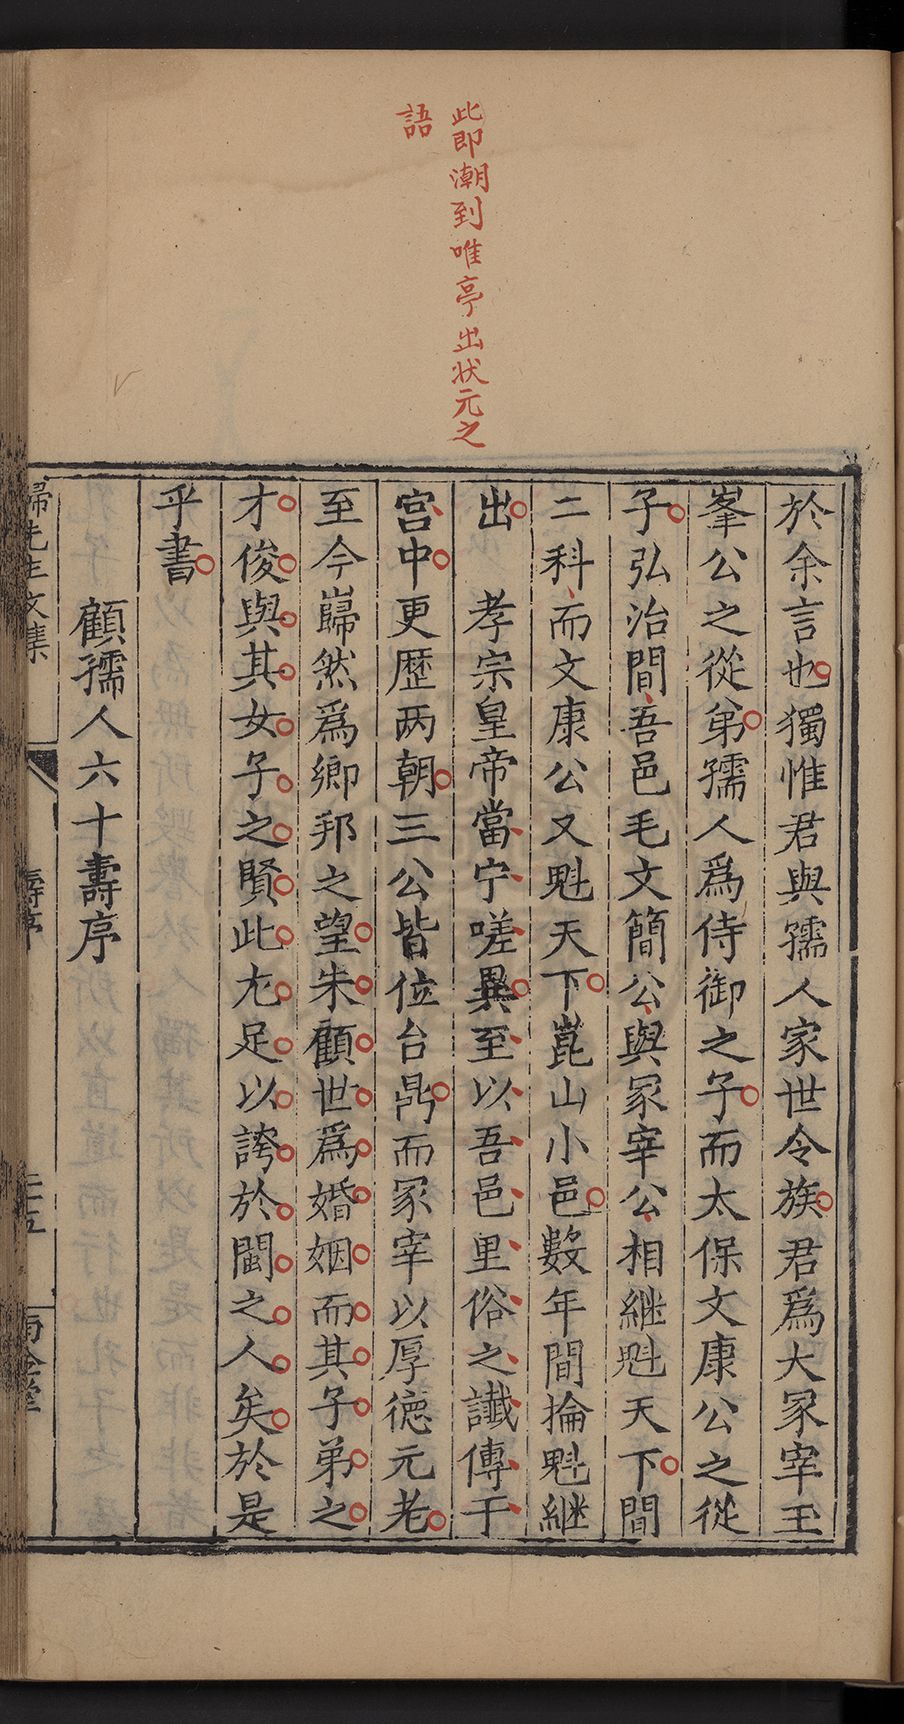 此即潮到唯亭出状元之
語
於余言也獨惟君與孺人家世令族君爲大冢宰玉
峯公之從弟孺人爲侍御之子而太保文康公之從
子弘治間吾邑毛文簡公與冢宰公相継魁天下間
二科而文康公又魁天下崑山小邑數年間掄魁継
出　孝宗皇帝當宁嗟異至以吾邑里俗之讖傳于
宫中更歴两朝三公皆位台鼎而冢宰以厚徳元老
至今巋然爲鄉邦之望朱顧世爲婚姻而其子弟之
才俊與其女子之賢此尤足以誇於閭之人矣於是
乎書
顧孺人六十壽序
歸先生文集
壽序